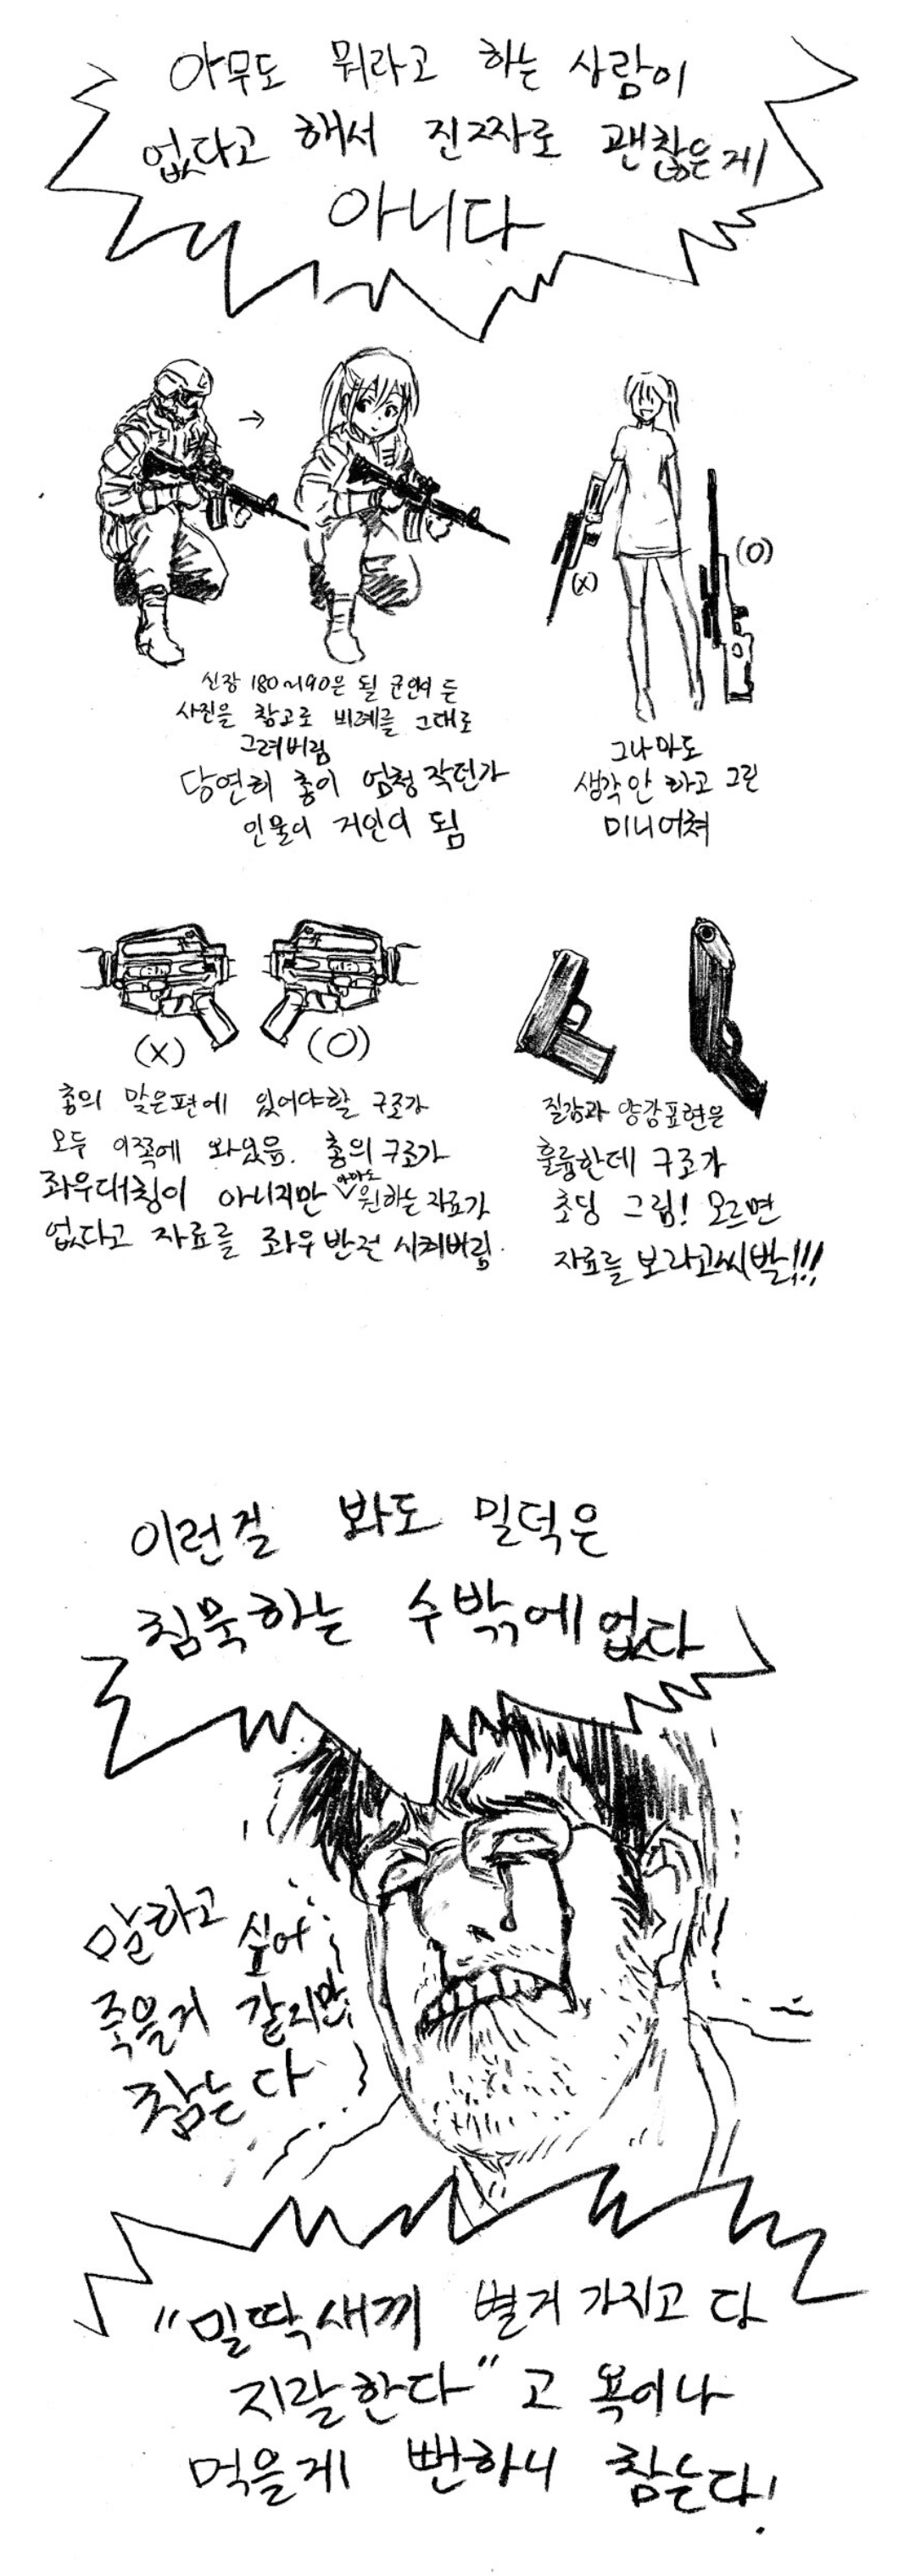 아무도 뭐라고 하는 사람이
없다고 해서 진짜로 괜찮은게
아니다
(X)
(O)
신장 180~190은 될 군인이 든
사진을 참고로 비례를 그대로
그려버림
당연히 총이 엄청 작던가
인물이 거인이 됨
그나마도
생각 안 하고 그린
미니어쳐
(X)
(O)
총의 맞은편에 있어야할 구조가
모두 이쪽에 와있음. 총의 구조가
좌우대칭이 아니지만 아마도 원하는 자료가
없다고 자료를 좌우 반전 시켜버림.
질감과 양감표현은
훌륭한데 구조가
초딩 그림! 모르면
자료를 보라고씨발!!!
이런걸 봐도 밀덕은
침묵하는 수밖에 없다
말하고 싶어
죽을거 같지만
참는다
"밀딱새끼 별거 가지고 다
지랄한다" 고 욕이나
먹을게 뻔하니 참는다!